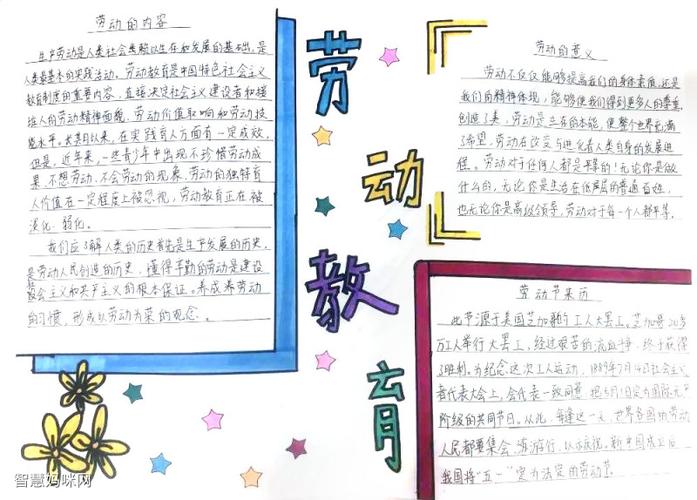 劳动的内容
生产劳动是人类社会类赖以生存和发展的基础，是
人类最基本的实践活动。劳动教育是中国特色社会主义
教育制度的重要内容，直接决定社会主义建设者和接
班人的劳动精神面貌，劳动价值取向和劳动技
能水平。长期以来，在实践育人方面有一定成效，
但是，近年来，一些青少年中出现不珍惜劳动成
果，不想劳动，不会劳动的现象，劳动的独特育
人价值在一定程度上被忽视，劳动教育正在被
淡化、弱化。
我们应了解人类的历史首先是生产发展的历史，
是劳动人民创造的历史，懂得辛勤的劳动是建设
社会主义和共产主义的根本保证。养成养劳动
的习惯，形成以劳动为荣的观念。
劳动教育
劳动的意义
劳动不仅仅能够提高我们的身体素质，还是
我们的精神体现，能够使我们得到更多人的尊重，
创造了美，劳动是生存的本能，使整个世界充满
了希望，劳动在改变与进化着人类自身的发展进
程。劳动对于任何人都是平等的！无论你是做
什么的，无论你是生活在低层层的普通百姓，
也无论你是高级领导，劳动对于每一个人都平等。
劳动节来历
此节源于美国芝加哥的工人大罢工。芝加哥20多
万工人举行大罢工，经过艰苦的流血斗争，终于获得
了胜利。为纪念这次工人运动，1889年7月14日社会主义
者代表大会上，会代表一致同意，把5月1日定为国际无产
阶级的共同节日。从此，每逢这一天，世界各国的劳动
人民都要集会，游行，以示庆祝。新中国成立后
我国将“五一”定为法定的劳动节。
智慧妈咪网